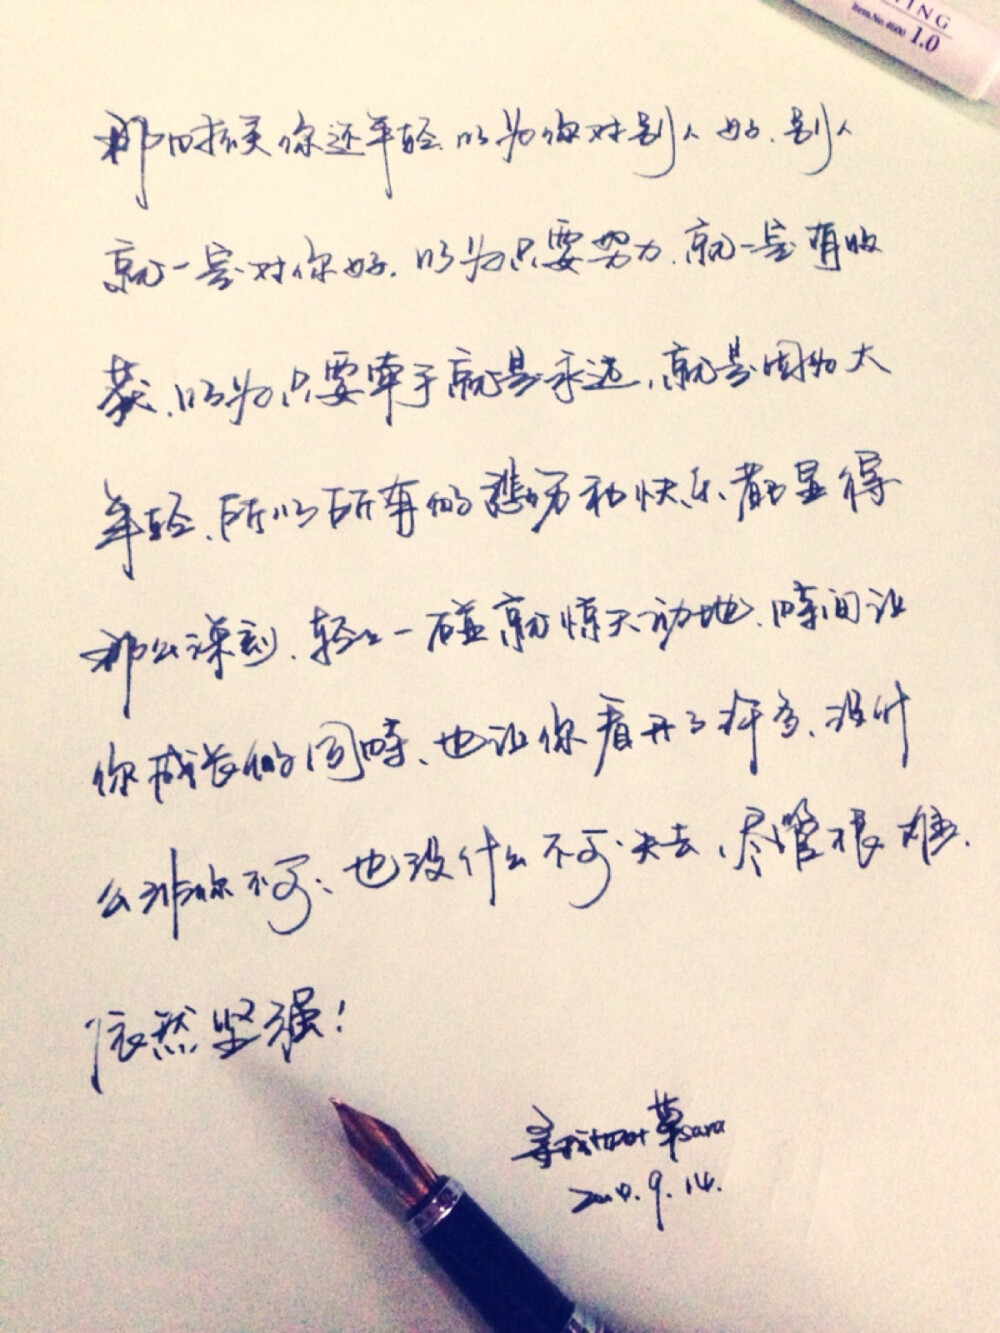 ING
Item.No.4600 1.0
那时候你还年轻.以为你对别人好.别人
就一定对你好.以为只要努力.就一定有收
获.以为只要牵手就是永远.就是因为太
年轻.所以所有的悲伤和快乐都显得
那么深刻.轻轻一碰就惊天动地.时间让
你成长的同时、也让你看开了许多、没什
么非你不可、也没什么不可失去、尽管很难.
依然坚强!
寻找四叶草sara
2014.9.14.